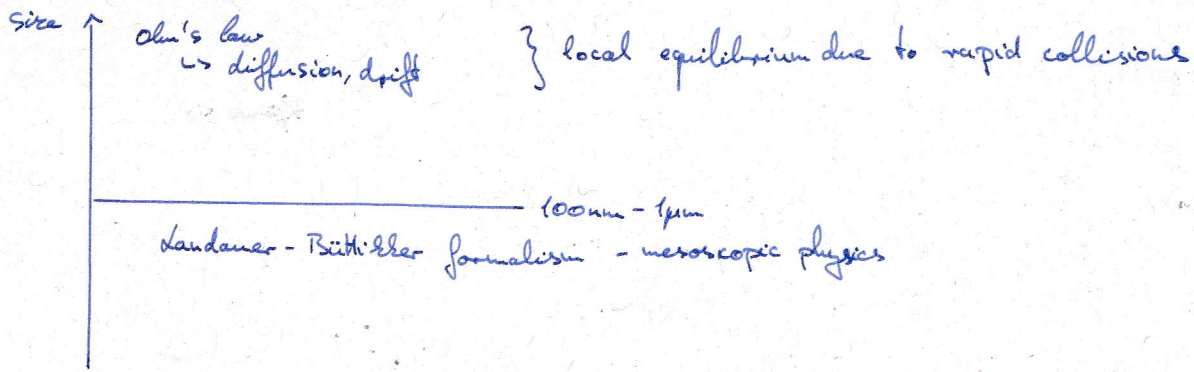 size
ohm's law
↳ diffusion, drift } local equilibrium due to rapid collisions
100nm - 1µm
Landauer - Büttikker formalism - mesoscopic physics